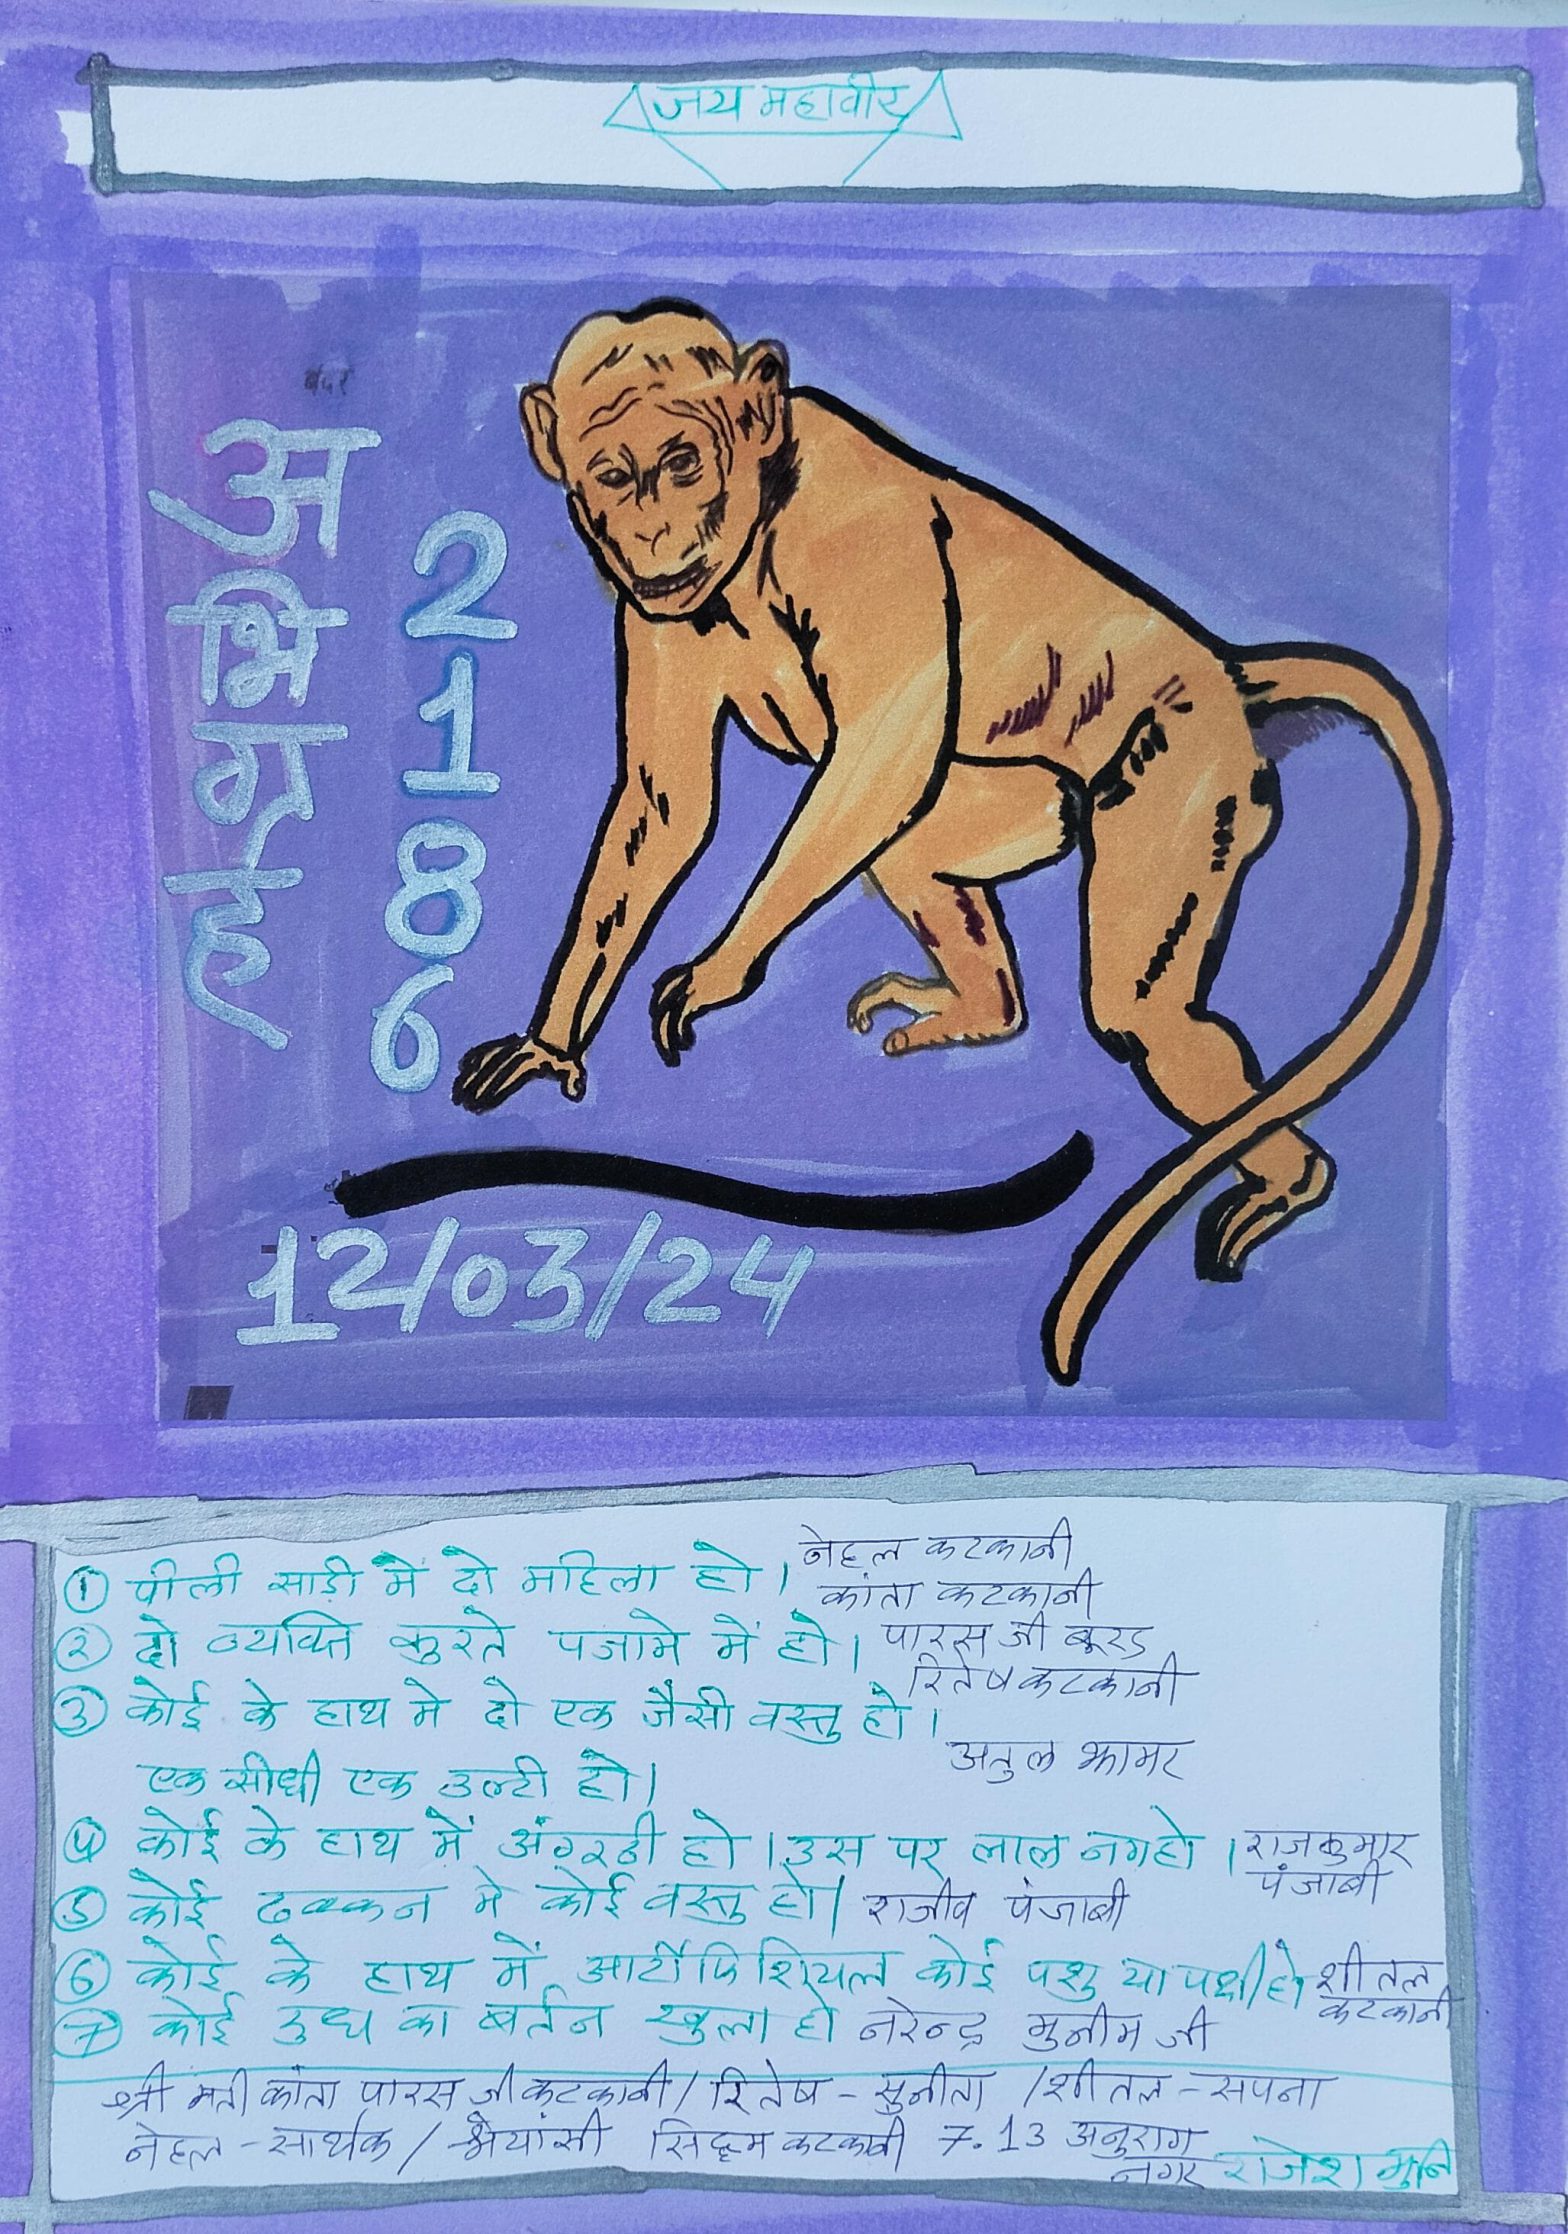 जय महावीर
बंदर
अभिग्रह
2186
12/03/24
① पीली साड़ी में दो महिला हो। नेहल कटकानी
कांता कटकानी
② दो व्यक्ति कुरते पजामे में हो। पारस जी बूरड
रितेष कटकानी
③ कोई के हाथ मे दो एक जैसी वस्तु हो।
एक सीधी एक उल्टी हो। अतुल झामर
④ कोई के हाथ में अंगूठी हो। उस पर लाल नग हो। राजकुमार
पंजाबी
⑤ कोई ढक्कन मे कोई वस्तु हो। राजीव पंजाबी
⑥ कोई के हाथ में आर्टीफिशियल कोई पशु या पक्षी हो शीतल
कटकानी
⑦ कोई दुध का बर्तन खुला हो नरेन्द्र मुनीम जी
श्री मती कांता पारस जी कटकानी / रितेष - सुनीता / शीतल - सपना
नेहल - सार्थक / श्रेयांसी कटकानी 7.13 अनुराग
नगर राजेश मुनि